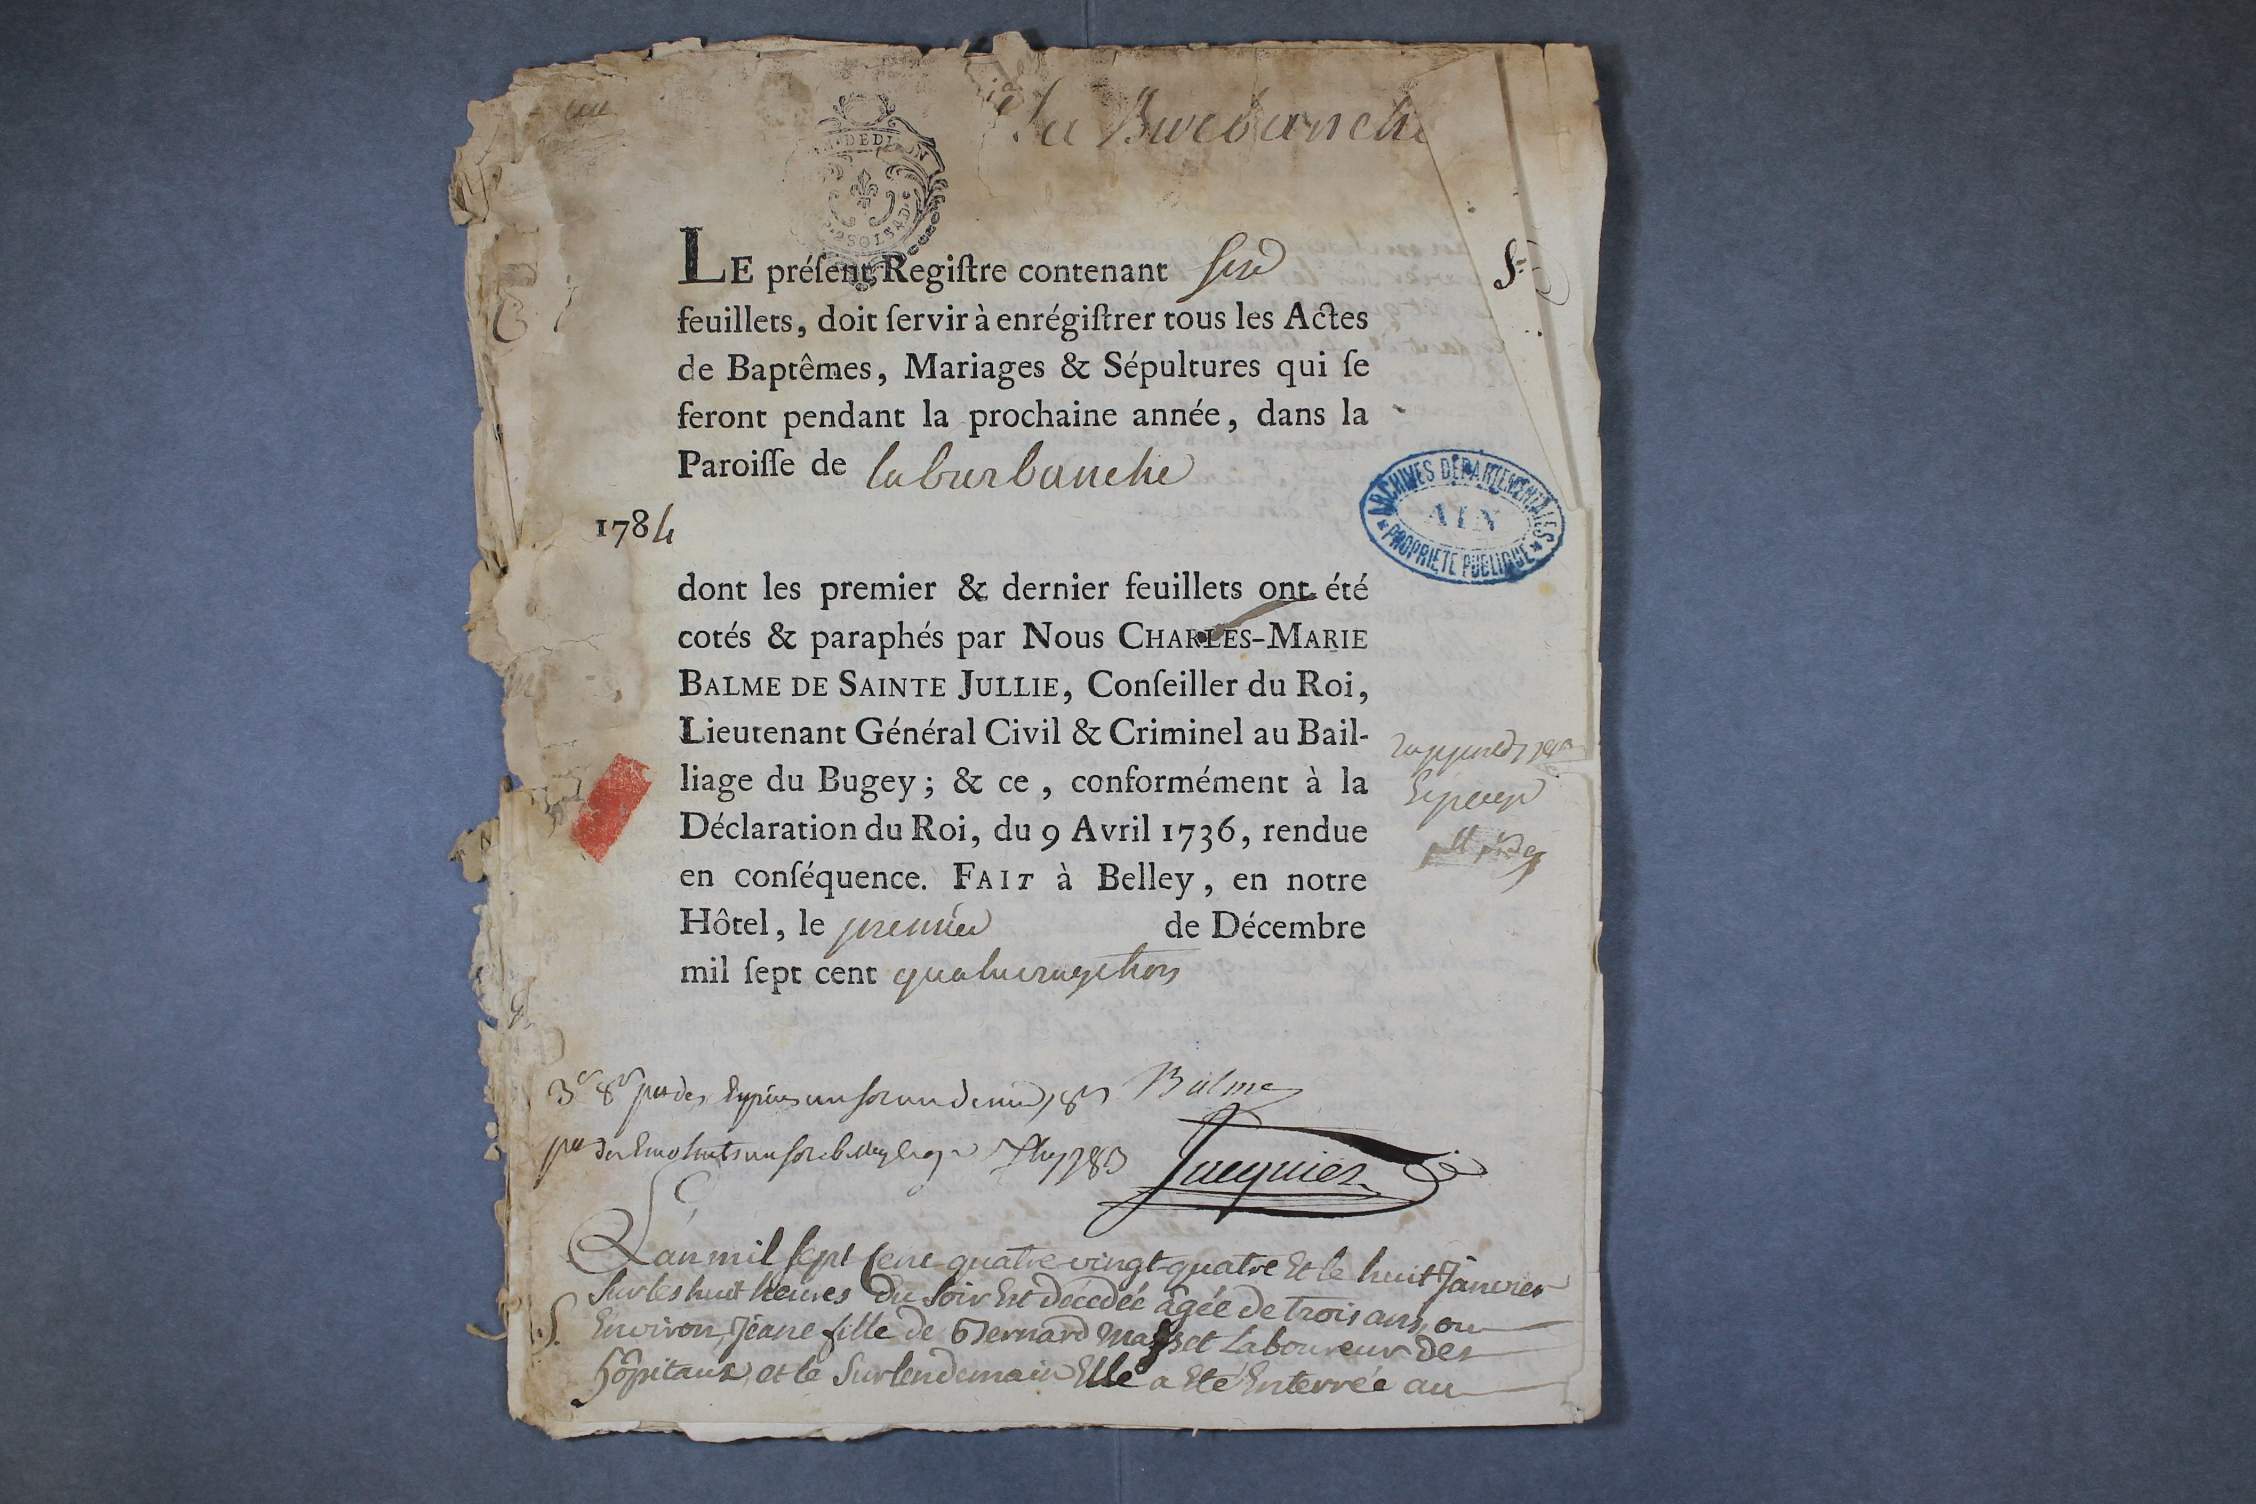 La Burbanche
LE préſent Regiſtre contenant six
feuillets, doit ſervir à enrégiſtrer tous les Actes
de Baptêmes, Mariages & Sépultures qui ſe
feront pendant la prochaine année, dans la
Paroiſſe de laburbanche
1784
ARCHIVES DEPARTEMENTALES
AIN
PROPRIETE PUBLIQUE
dont les premier & dernier feuillets ont été
cotés & paraphés par Nous CHARLES-MARIE
BALME DE SAINTE JULLIE, Conſeiller du Roi,
Lieutenant Général Civil & Criminel au Bail-
liage du Bugey ; & ce, conformément à la
Déclaration du Roi, du 9 Avril 1736, rendue
en conſéquence. FAIT à Belley, en notre
Hôtel, le premier de Décembre
mil ſept cent quatrevingt trois
Balme
1783 Jacquier
L'an mil sept cent quatre vingt quatre Et le huit Janvier
Sur les huit heures Du Soir Est décedée âgée de trois ans, ou
Environ, Jeane fille de Bernard Laboureur des
hôpitaux, et le Surlendemain Elle a Eté Enterrée au